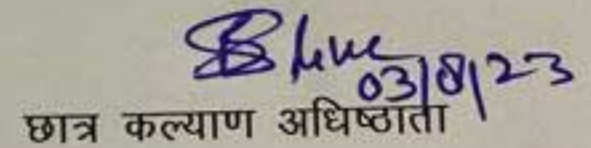 03/8/23
छात्र कल्याण अधिष्ठाता